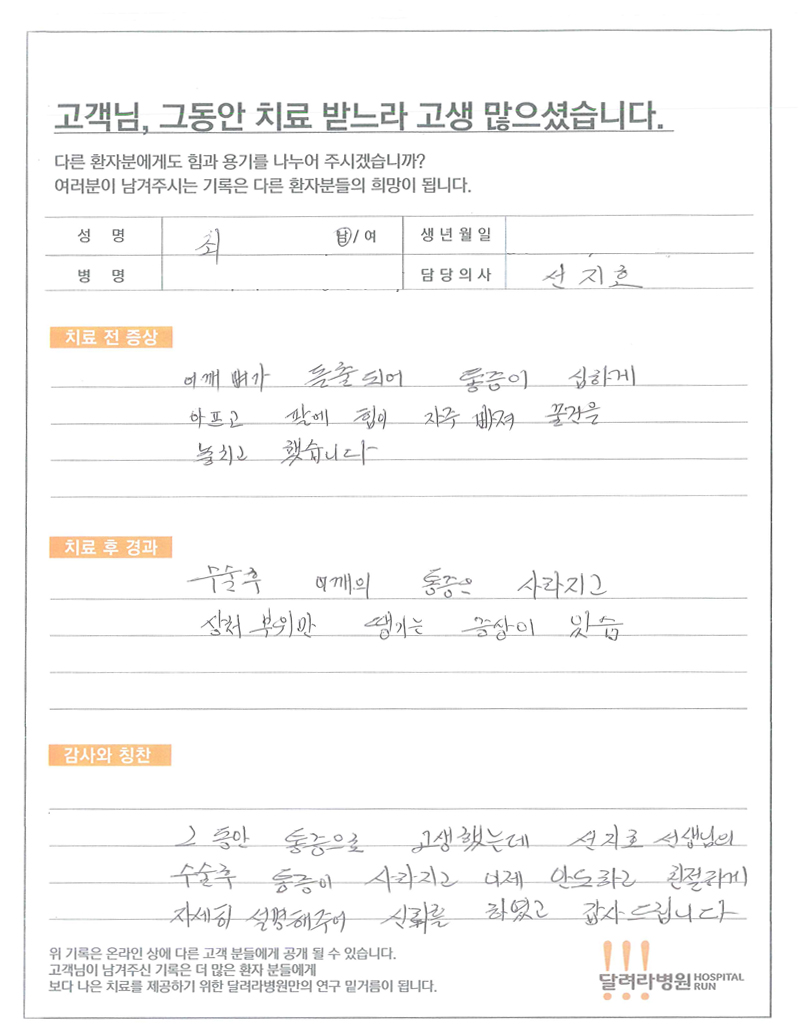 고객님, 그동안 치료 받느라 고생 많으셨습니다.
다른 환자분에게도 힘과 용기를 나누어 주시겠습니까?
여러분이 남겨주시는 기록은 다른 환자분들의 희망이 됩니다.
성 명 최 남/여 생년월일
병 명 담당의사 선지호
치료 전 증상
어깨 뼈가 돌출되어 통증이 심하게
아프고 팔에 힘이 자주 빠져 물건을
놓치고 했습니다
치료 후 경과
수술후 어깨의 통증은 사라지고
상처 부위만 땡기는 증상이 있습
감사와 칭찬
그 동안 통증으로 고생했는데 선지호 선생님의
수술후 통증이 사라지고 이제 안도하고 친절하게
자세히 설명해주어 신뢰를 하였고 감사드립니다
위 기록은 온라인 상에 다른 고객 분들에게 공개 될 수 있습니다.
고객님이 남겨주신 기록은 더 많은 환자 분들에게
보다 나은 치료를 제공하기 위한 달려라병원만의 연구 밑거름이 됩니다.
!!!
달려라병원 HOSPITAL RUN